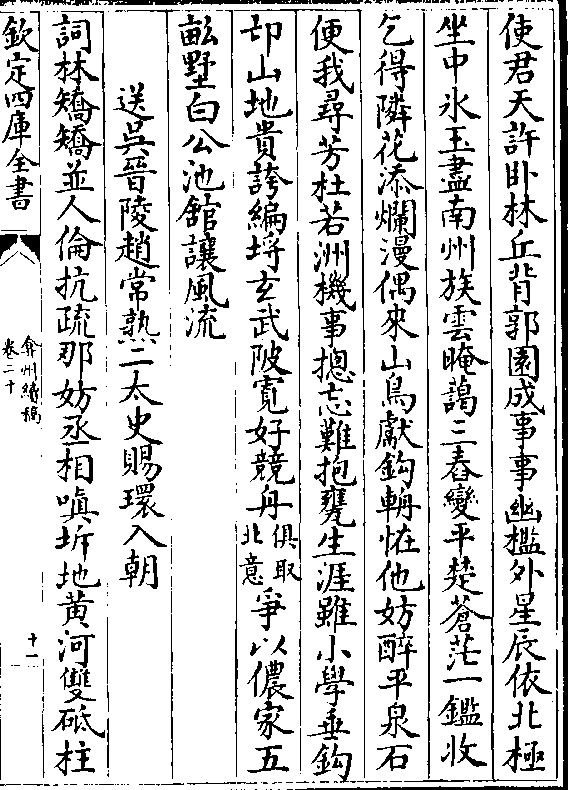 使君天許卧林丘背郭園成事事幽檻外星辰依北極
坐中氷玉盡南州族雲晻藹三春變平楚蒼茫一鑑收
乞得隣花添爛漫偶來山鳥獻鈎輈恠他妨醉平泉石
便我尋芳杜若洲機事揔忘難抱甕生涯雖小學垂鈎
卭山地貴誇編埓玄武陂寛好競舟俱取北意爭以儂家五
畝墅白公池館讓風流
送吳晉陵趙常熟二太史賜環入朝
詞林矯矯並人倫抗疏那妨丞相嗔坼地黄河雙砥柱
欽定四庫全書
弇州續稿
卷二十
十一